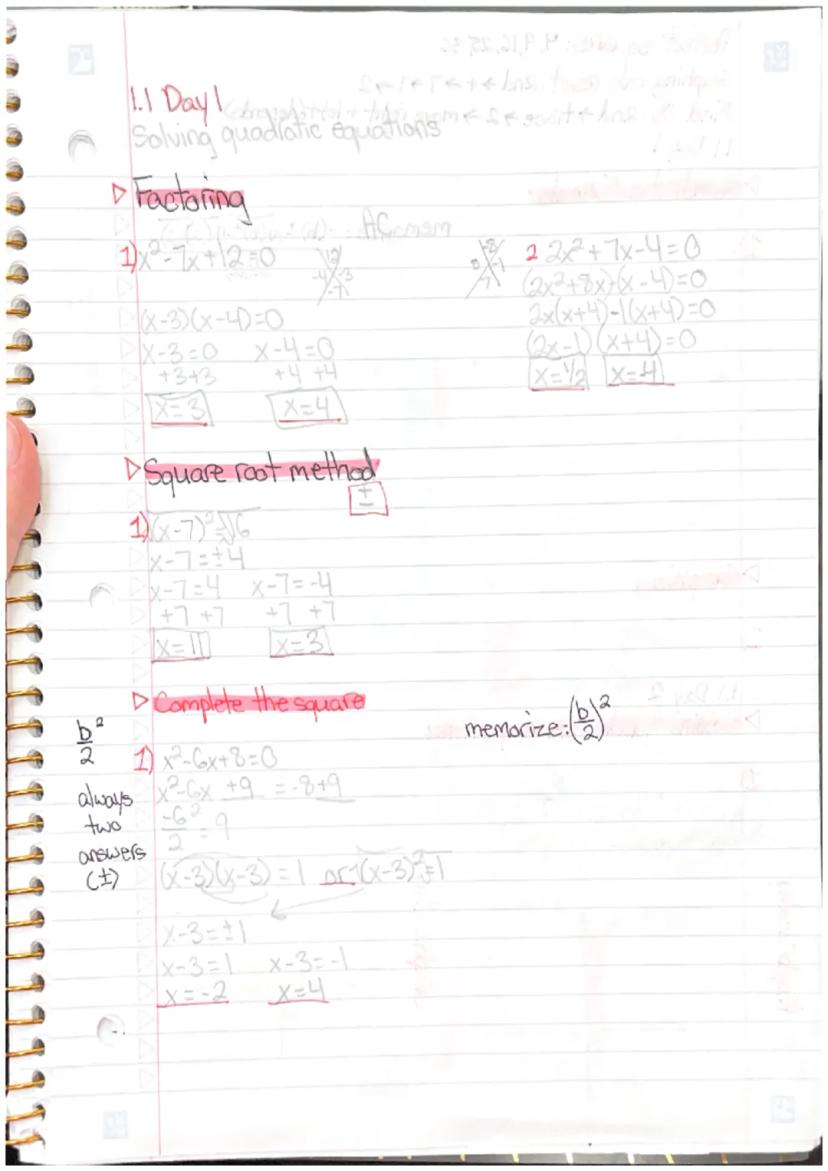 1.1 Day 1
Solving quadratic equations
Factoring
1) x²-7x+12=0
12
-4 -3
-7
(x-3)(x-4)=0
x-3=0 x-4=0
+3+3 +4 +4
x=3 x=4
-8
8 -1
7
2 2x²+7x-4=0
(2x²+8x)(x-4)=0
2x(x+4)-1(x+4)=0
(2x-1)(x+4)=0
x=1/2 x=-4
Square root method
±
1) √(x-7)²=√16
x-7=±4
x-7=4 x-7=-4
+7 +7 +7 +7
x=11 x=3
Complete the square
memorize: (b/2)²
b²/2
always
two
answers
(±)
1) x²-6x+8=0
x²-6x +9 =-8+9
-6²/2 = 9
(x-3)(x-3)=1 or √(x-3)²=√1
x-3=±1
x-3=1 x-3=-1
x=-2 x=4